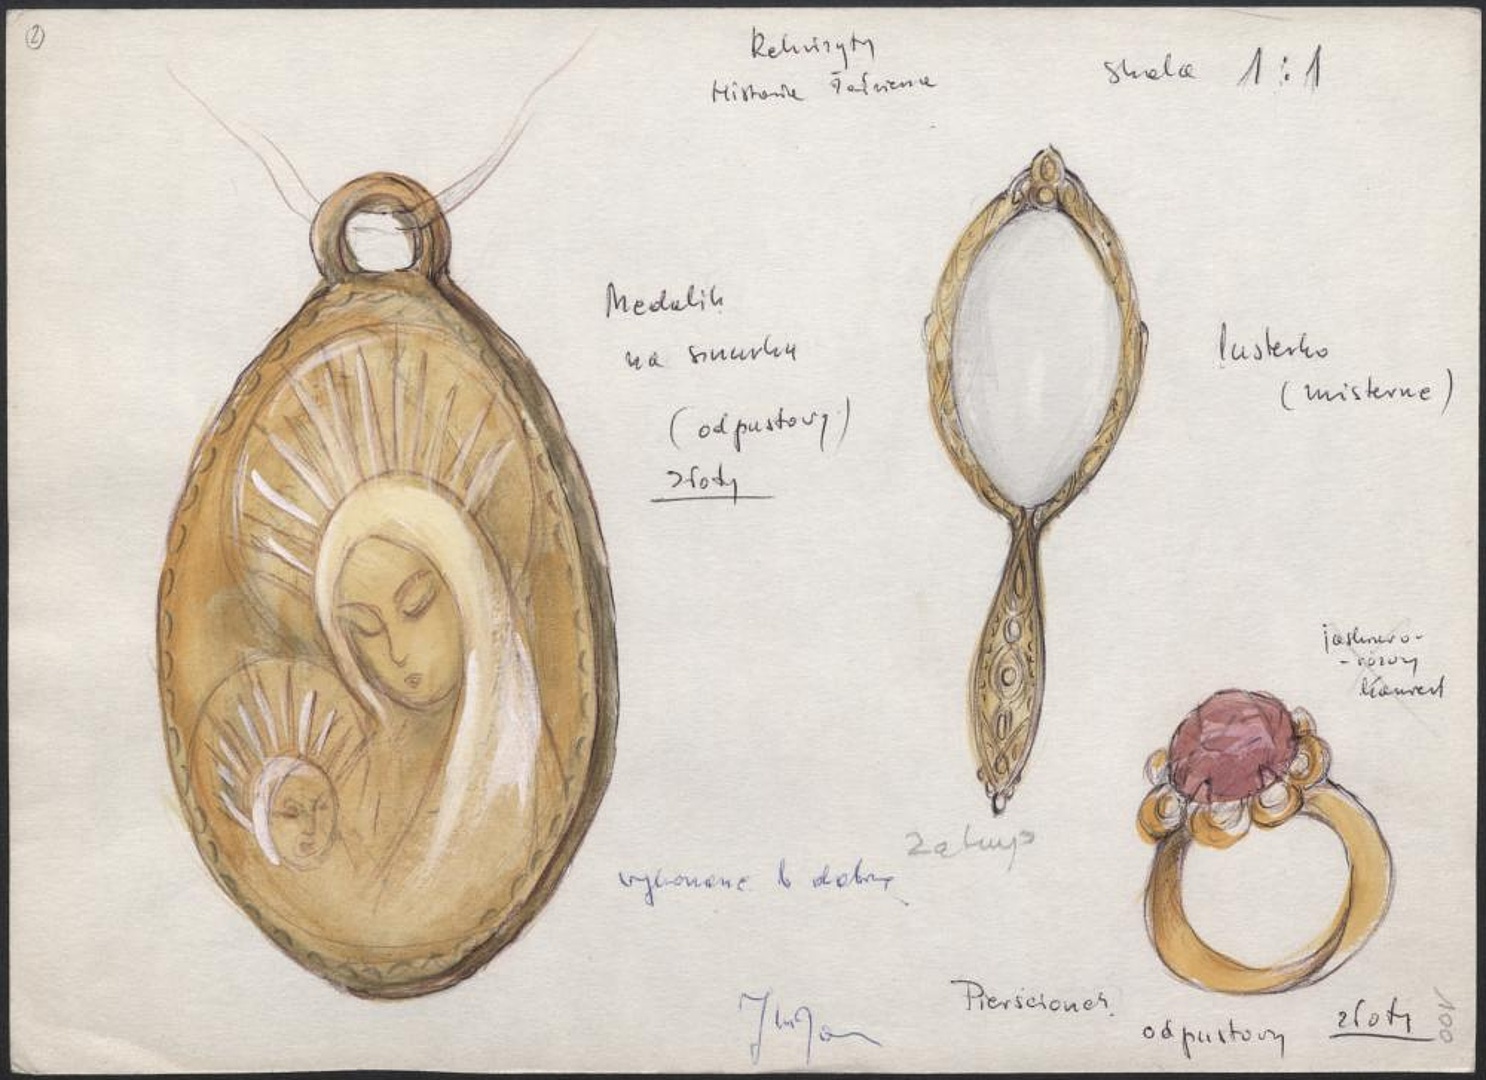 2
Rekwizyty
Historia
skala 1:1
Medalik
na sznurku
(odpustowy)
złoty
lusterko
(misterne)
jaskrawo-
-różowy
kamień
zakup
wykonane b. dobrze
Pierścionek
odpustowy złoty
100